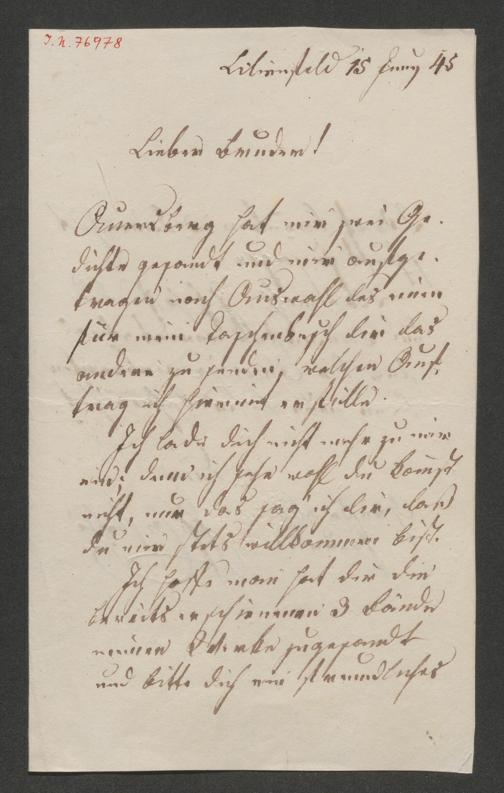 I.N. 76978
Lilienfeld 15 Juny 45
Lieber Bruder!
Auersberg hat mir zwei Ge-
dichte gesandt und mir aufge-
tragen nach Auswahl des einen
für mein Taschenbuch dir das
andere zu senden, welchen Auf-
trag ich hiemit erfülle.
Ich lade dich nicht mehr zu mir
ein; denn ich sehe wohl du kömst
nicht, nur das sag' ich dir, dass
du mir stets willkommen bist.
Ich hoffe man hat dir die
bereits erschienenen 3 Bände
meiner Werke zugesandt
und bitte dich ein freundliches